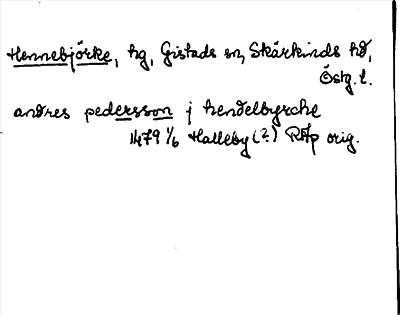 Hennebjörke, hg, Gistads sn, Skärkinds hd,
Östg. l.
andres pedersson j hendelbyrche
1479 1/6 Halleby (?) RAp orig.